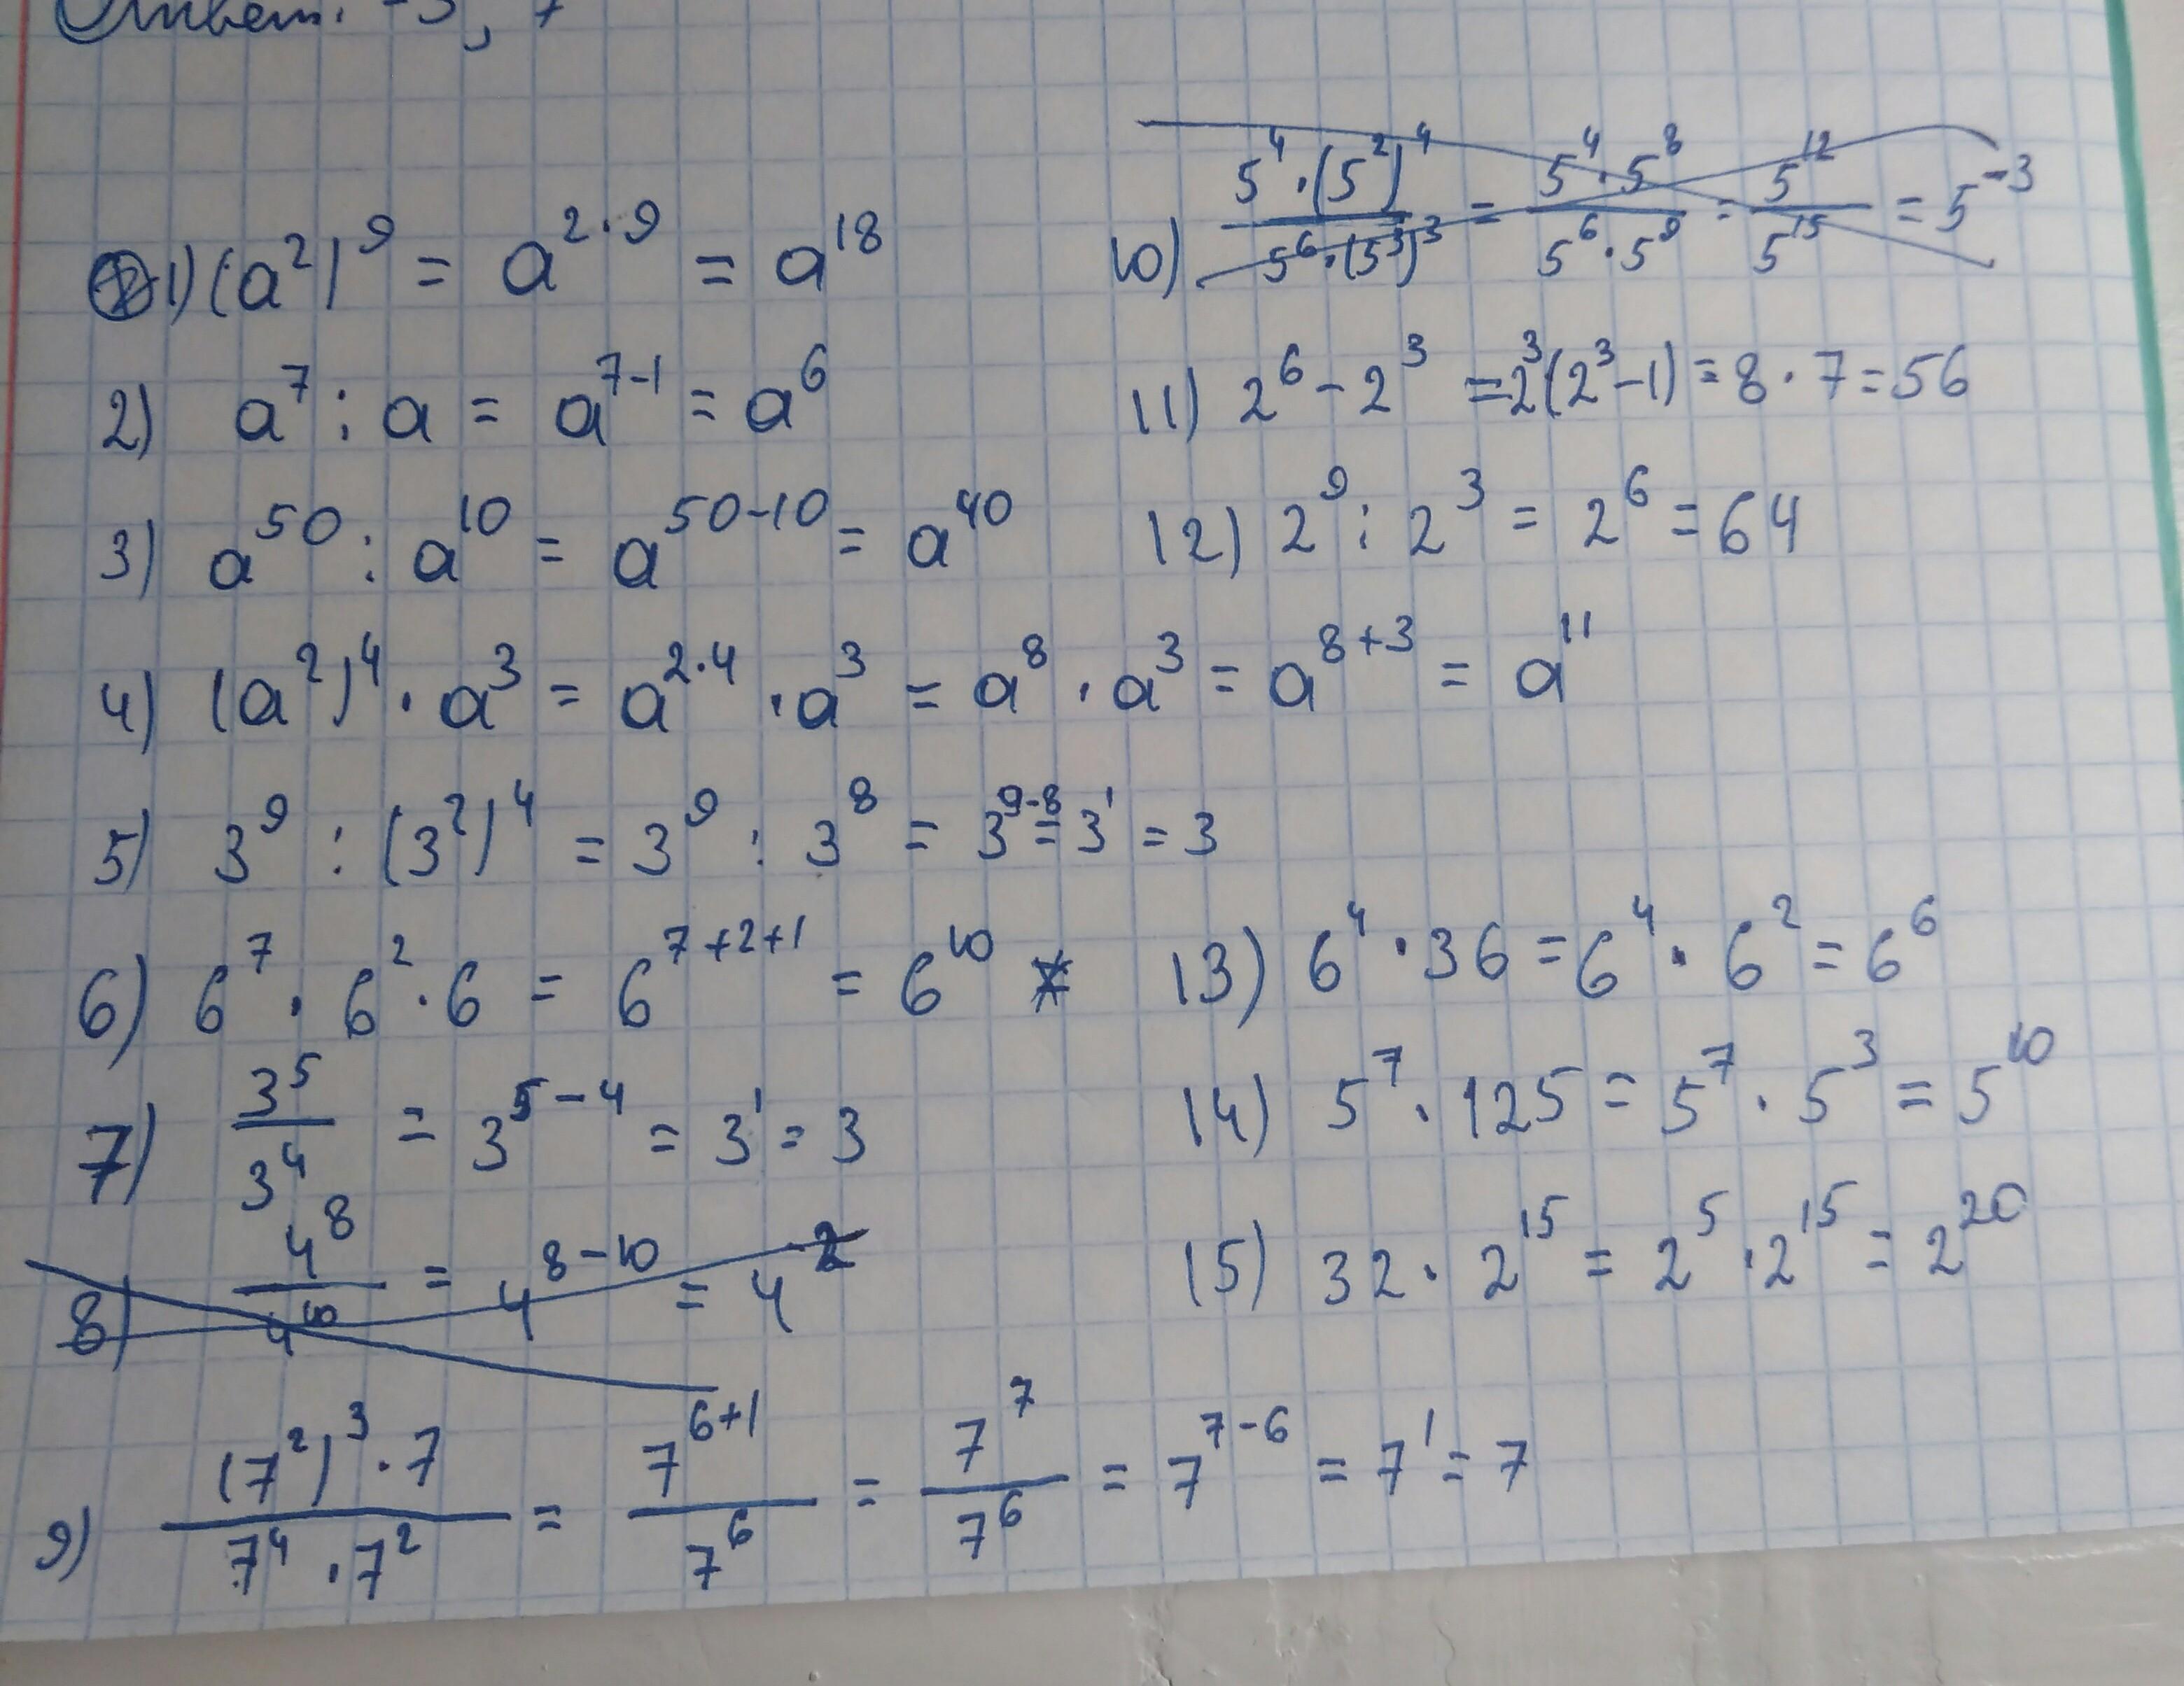 Ответ: -3, 7
1) (a²)⁹ = a^{2·9} = a¹⁸
2) a⁷ : a = a^{7-1} = a⁶
3) a⁵⁰ : a¹⁰ = a^{50-10} = a⁴⁰
4) (a²)⁴ · a³ = a^{2·4} · a³ = a⁸ · a³ = a^{8+3} = a¹¹
5) 3⁹ : (3²)⁴ = 3⁹ : 3⁸ = 3^{9-8} = 3¹ = 3
6) 6⁷ · 6² · 6 = 6^{7+2+1} = 6¹⁰
7) 3⁵/3⁴ = 3^{5-4} = 3¹ = 3
8) 4⁸/4¹⁰ = 4^{8-10} = 4⁻²
9) (7²)³ · 7 / 7⁴ · 7² = 7^{6+1}/7⁶ = 7⁷/7⁶ = 7^{7-6} = 7¹ = 7
10) 5⁴ · (5²)⁴ / 5⁶ · (5³)³ = 5⁴ · 5⁸ / 5⁶ · 5⁹ = 5¹²/5¹⁵ = 5⁻³
11) 2⁶ - 2³ = 2³(2³ - 1) = 8 · 7 = 56
12) 2⁹ : 2³ = 2⁶ = 64
13) 6⁴ · 36 = 6⁴ · 6² = 6⁶
14) 5⁷ · 125 = 5⁷ · 5³ = 5¹⁰
15) 32 · 2¹⁵ = 2⁵ · 2¹⁵ = 2²⁰